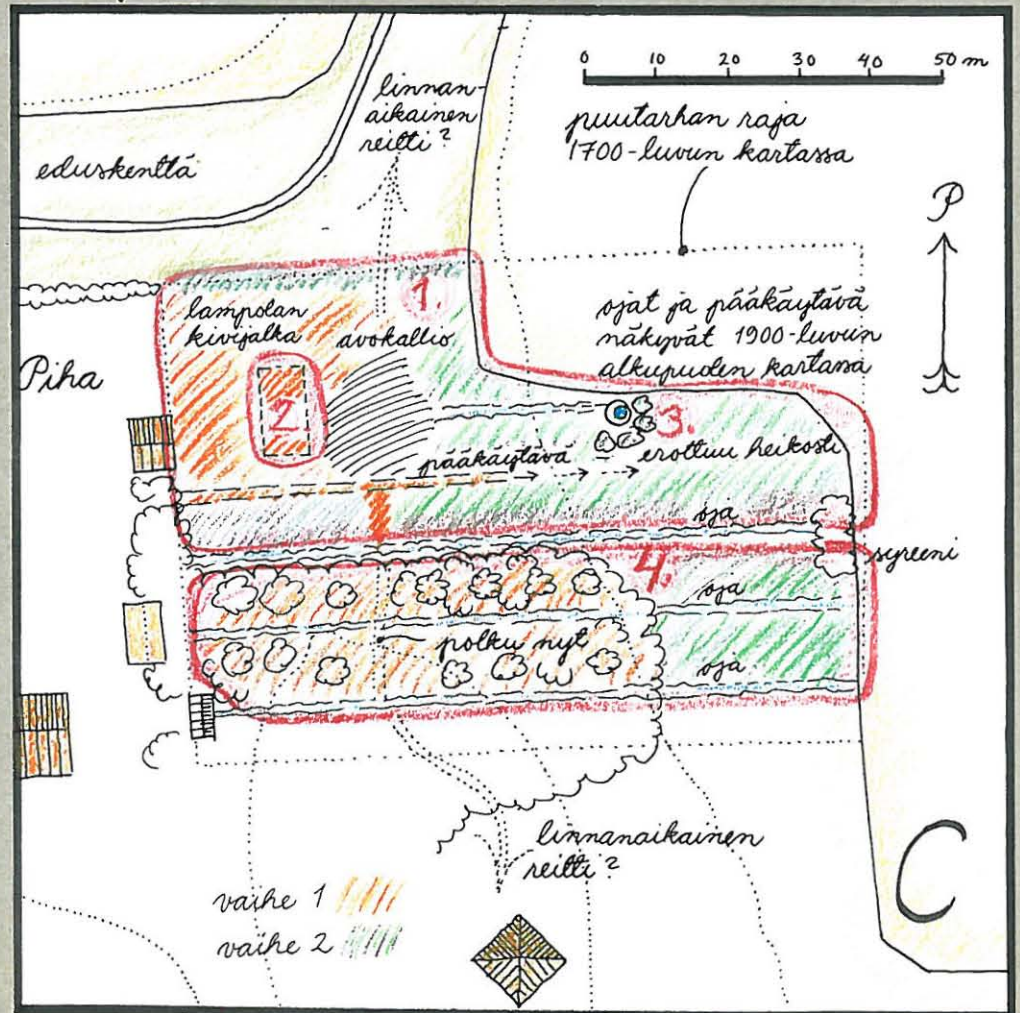 0 10 20 30 40 50 m
linnan-
aikainen
reitti?
puutarhan raja
1700-luvun kartassa
eduskenttä
P
1.
lampolan
kivijalka
avokallio
ojat ja pääkäytävä
näkyvät 1900-luvun
alkupuolen kartassa
Piha
2
3.
pääkäytävä
erottuu heikosti
oja
syreeni
4.
oja
polku nyt
oja
linnanaikainen
reitti?
C
vaihe 1
vaihe 2